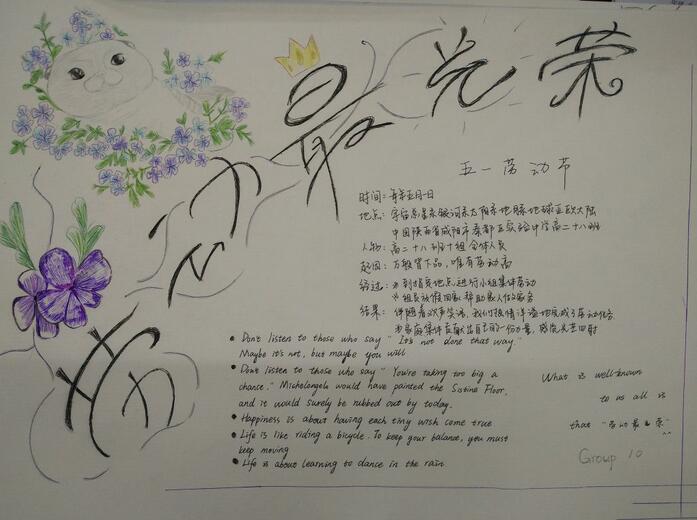 劳动最光荣
五一劳动节
时间：每年五月一日
地点：宇宙总星系银河系太阳系地球亚欧大陆
中国陕西省咸阳市秦都区实验中学高二十八班
人物：高二十八班十组全体人员
起因：万般皆下品，唯有劳动高
经过：到指定地点进行小组集体劳动
组员放假回家帮助家人做家务
结果：伴随着欢声笑语，我们热情洋溢地完成了劳动任务
为家庭集体贡献出自己的一份力量，感觉光芒四射
• Don't listen to those who say "It's not done that way."
Maybe it's not, but maybe you will
• Don't listen to those who say "You're taking too big a
chance." Michelangelo would have painted the Sistine Floor,
and it would surely be rubbed out by today.
• Happiness is about having each tiny wish come true
• Life is like riding a bicycle. To keep your balance, you must
keep moving
• Life is about learning to dance in the rain
What is well-known
to us all is
that "劳动最光荣"
Group 10